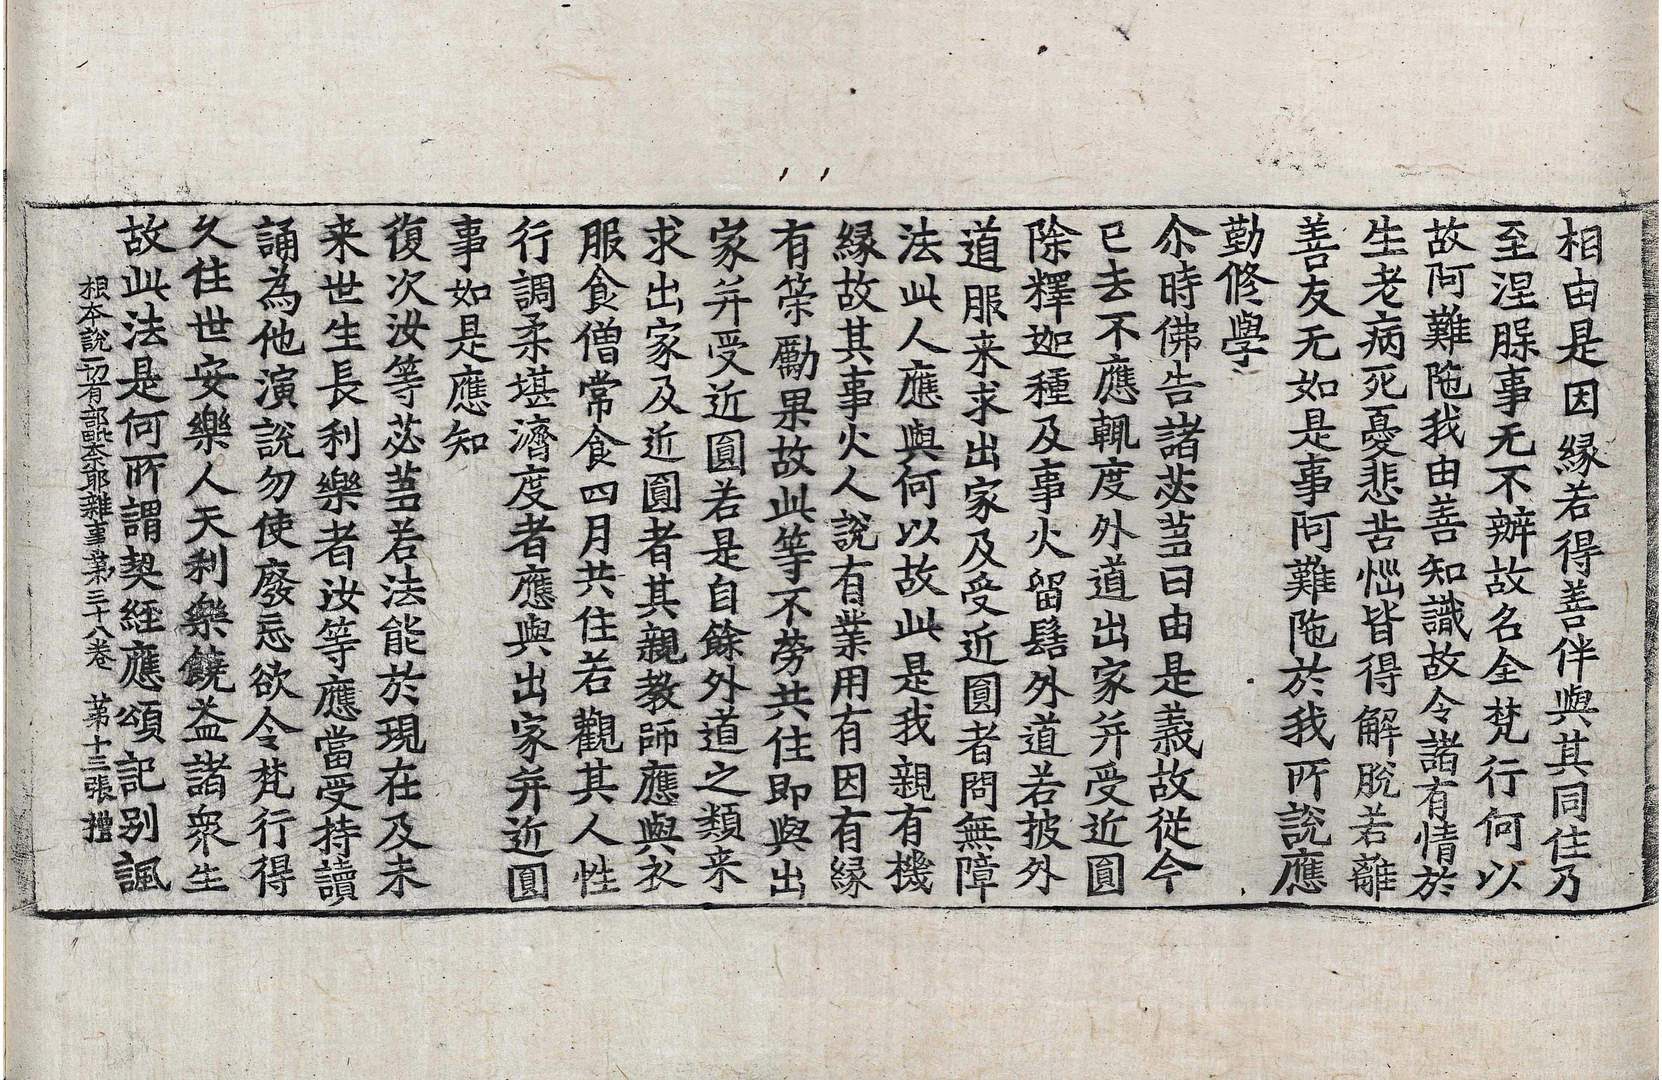 相由是因緣若得善伴與其同住乃
至涅槃事无不辦故名全梵行何以
故阿難陁我由善知識故令諸有情於
生老病死憂悲苦惱皆得解脫若離
善友无如是事阿難陁於我所說應
勤修學
尒時佛告諸苾蒭曰由是義故從今
已去不應輒度外道出家幷受近圓
除釋迦種及事火留髻外道若披外
道服来求出家及受近圓者問無障
法此人應與何以故此是我親有機
緣故其事火人說有業用有因有緣
有策勵果故此等不勞共住即與出
家幷受近圓若是自餘外道之類来
求出家及近圓者其親教師應與衣
服食僧常食四月共住若觀其人性
行調柔堪濟度者應與出家幷近圓
事如是應知
復次汝等苾蒭若法能於現在及未
来世生長利樂者汝等應當受持讀
誦為他演說勿使廢忘欲令梵行得
久住世安樂人天利樂饒益諸衆生
故此法是何所謂契經應頌記別諷
根本說一切有部毗奈耶雜事第三十八卷　第十三張　禮